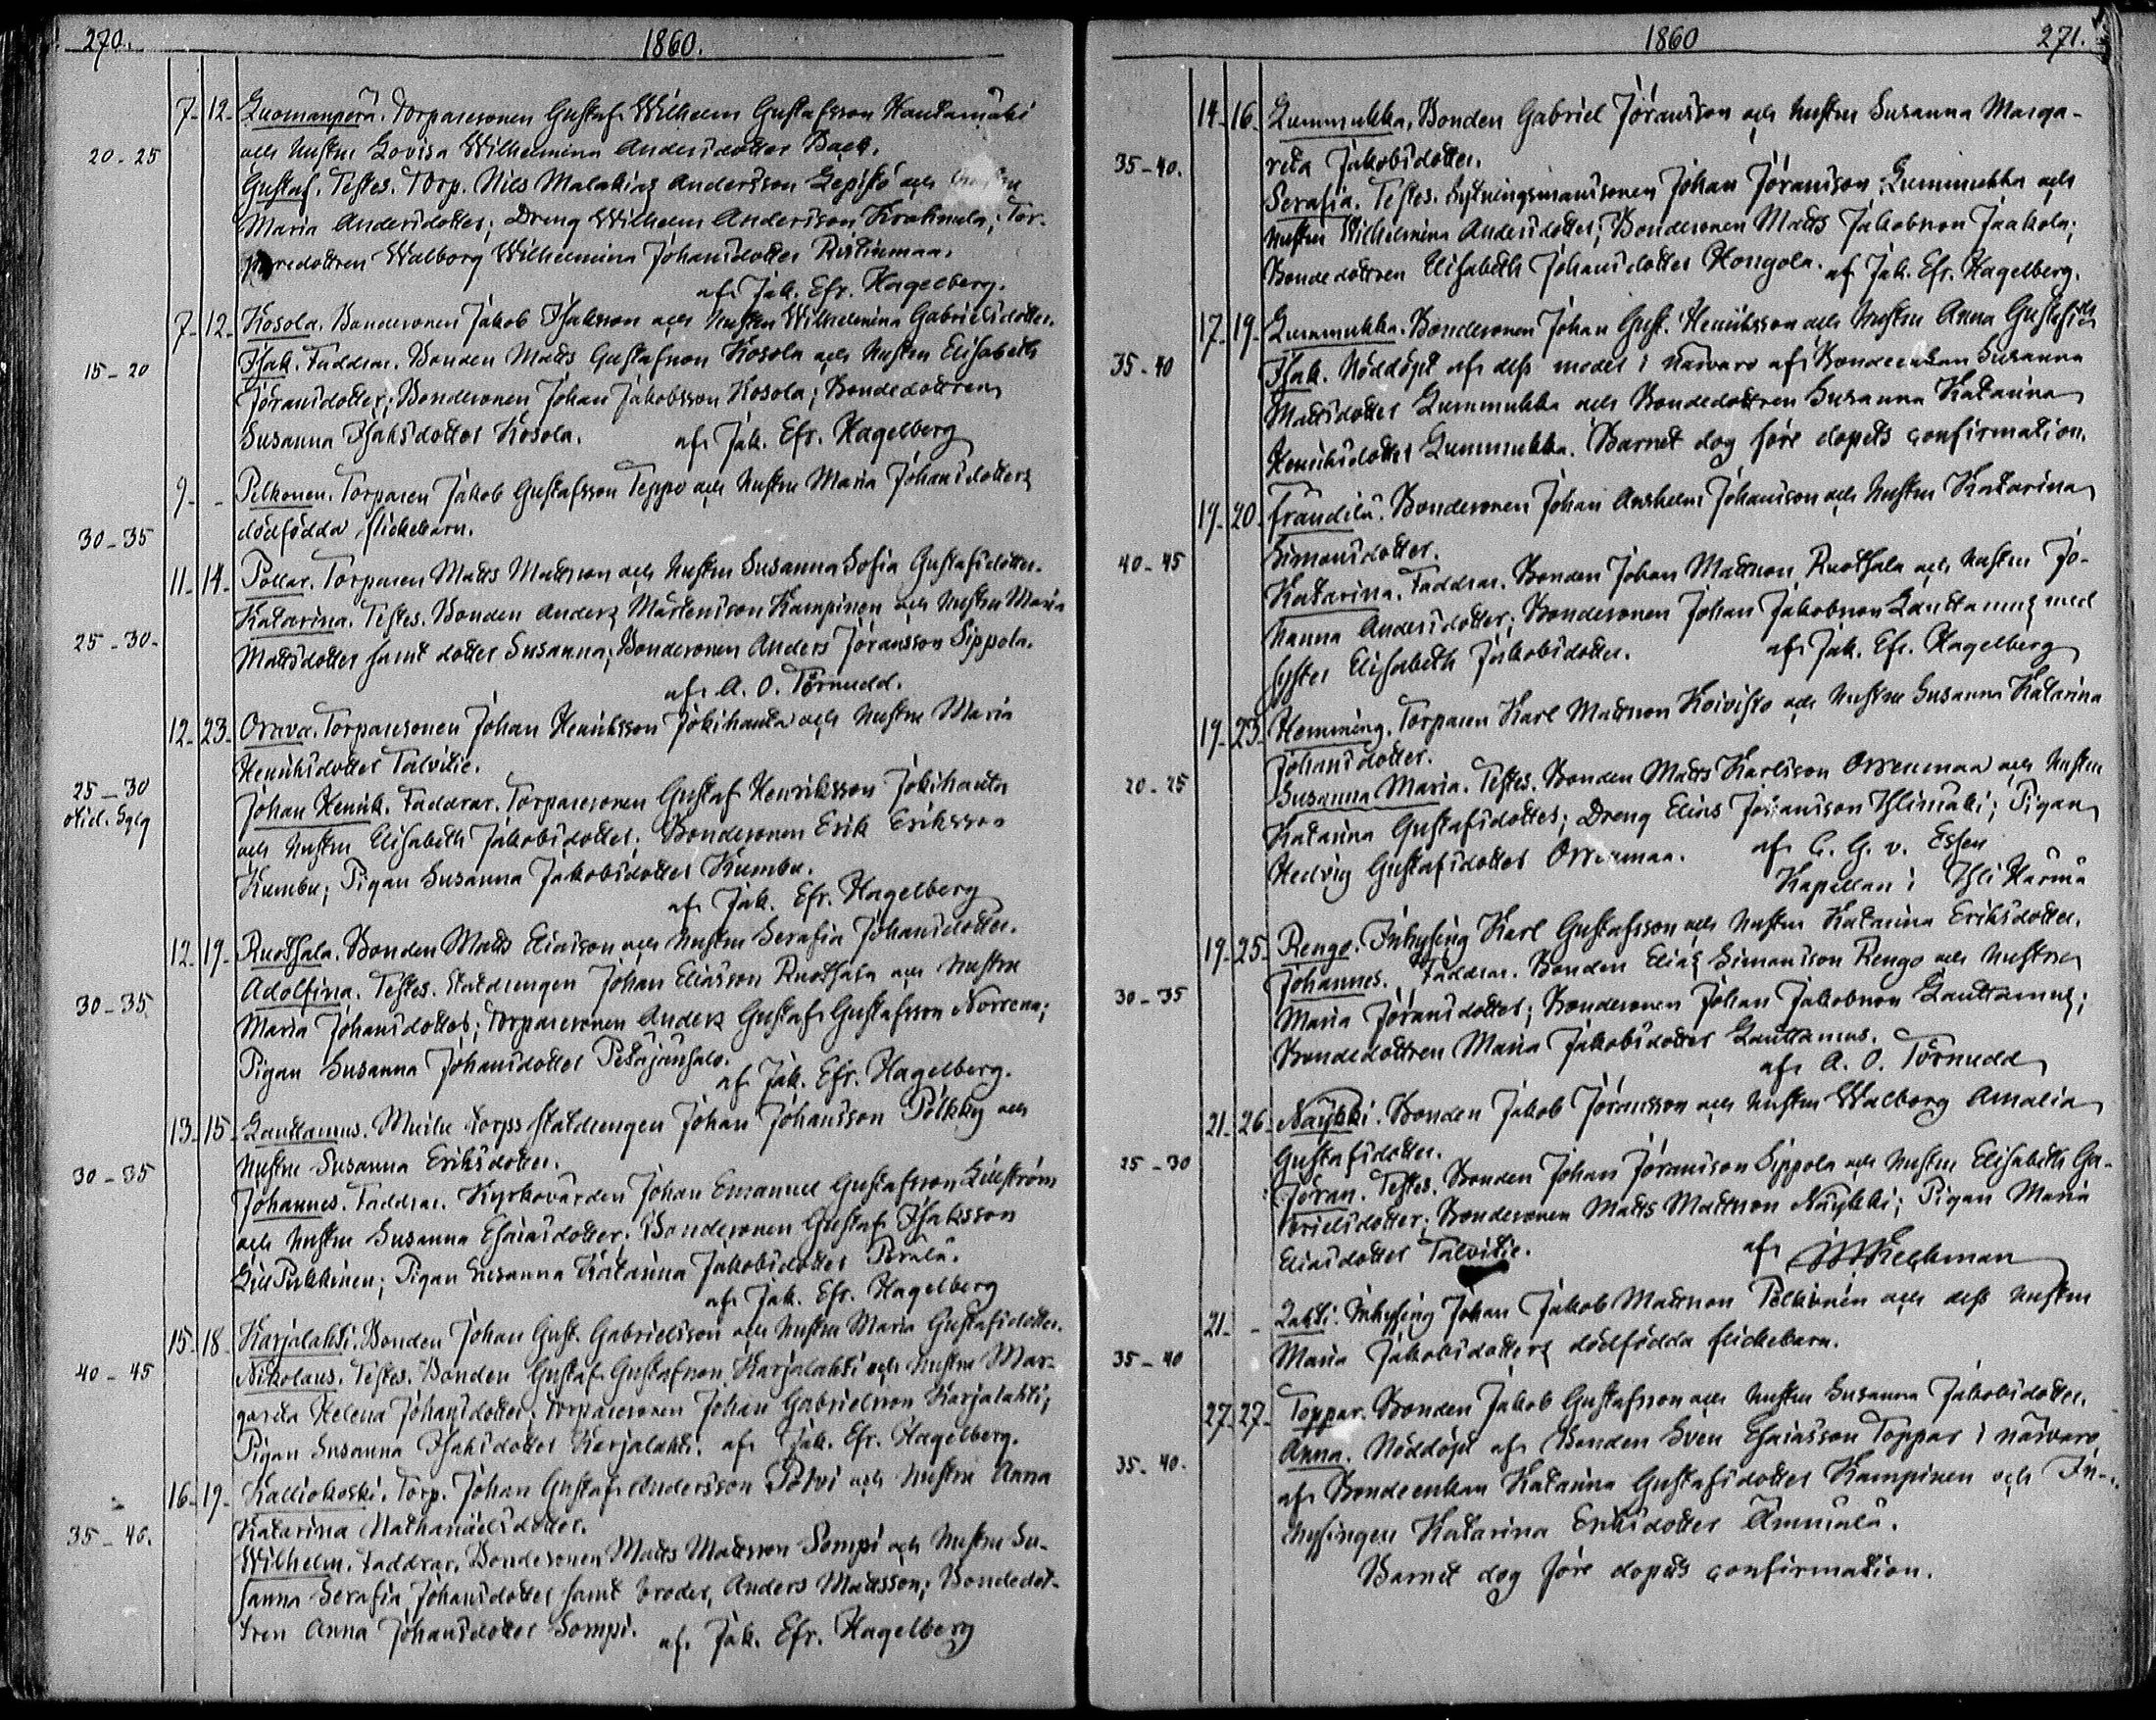 270. 1860.
7. 12. Luomanperä. Torparesonen Gustaf Wilhelm Gustafsson Hautamäki
20-25 och hustru Lovisa Wilhelmina Andersdotter Back.
Gustaf. Testes. Torp. Nils Malakias Andersson Lepistö och hustru
Maria Andersdotter; Dreng Wilhelm Andersson Krakmala; Tor-
paredottren Walborg Wilhelmina Johansdotter Ristinmaa.
af Jak. Efr. Hagelberg.
7. 12. Kosola. Bondesonen Jakob Isaksson och hustru Wilhelmina Gabrielsdotter.
15-20 Isak. Faddrar. Bonden Matts Gustafsson Kosola och hustru Elisabeth
Jöransdotter; Bondesonen Johan Jakobsson Kosola; Bondedottren
Susanna Isaksdotter Kosola. af Jak. Efr. Hagelberg
9. - Pelkonen. Torparen Jakob Gustafsson Teppo och hustru Maria Johansdotters
30-35 dödfödda flickebarn.
11. 14. Pollar. Torparen Matts Mattsson och hustru Susanna Sofia Gustafsdotter.
Katarina. Testes. Bonden Anders Mårtensson Kampinen och hustru Maria
25-30. Mattsdotter samt dotter Susanna; Bondesonen Anders Jöransson Sippola.
af A. O. Törnudd.
12. 23. Orava. Torparesonen Johan Henriksson Jokihanta och hustru Maria
Henriksdotter Talvitie.
25-30 Johan Henrik. Faddrar. Torparesonen Gustaf Henriksson Jokihanta
och hustru Elisabeth Jakobsdotter; Bondesonen Erik Eriksson
Kumbu; Pigan Susanna Jakobsdotter Kumbu.
af Jak. Efr. Hagelberg
12. 19. Ruotsala. Bonden Matts Eliasson och hustru Serafia Johansdotter.
Adolfina. Testes. Statdrengen Johan Eliasson Ruotsala och hustru
30-35 Maria Johansdotter; Torparesonen Anders Gustaf Gustafsson Norrena;
Pigan Susanna Johansdotter Petäjänsalo.
af Jak. Efr. Hagelberg.
13. 15. Lauttamus. Muilu torps statdrengen Johan Johansson Pölkky och
30-35 hustru Susanna Eriksdotter.
Johannes. Faddrar. Kyrkovärden Johan Emanuel Gustafsson Lillström
och hustru Susanna Esaiasdotter; Bondesonen Gustaf Isaksson
Lill Pukkinen; Pigan Susanna Katarina Jakobsdotter Perälä.
af Jak. Efr. Hagelberg
15. 18. Karjalahti. Bonden Johan Gust. Gabrielsson och hustru Maria Gustafsdotter.
40-45 Nikolaus. Testes. Bonden Gustaf Gustafsson Karjalahti och hustru Mar-
gareta Helena Johansdotter; Torparesonen Johan Gabrielsson Karjalahti;
Pigan Susanna Isaksdotter Karjalahti. af Jak. Efr. Hagelberg.
16. 19. Kalliokoski. Torp. Johan Gustaf Andersson Potvi och hustru Anna
Katarina Nathanaelsdotter.
35-40. Wilhelm. Faddrar. Bondesonen Matts Mattsson Sompi och hustru Su-
sanna Serafia Johansdotter samt broder, Anders Mattsson; Bondedot-
tren Anna Johansdotter Sompi. af. Jak. Efr. Hagelberg
1860 271.
14. 16. Lummukka. Bonden Gabriel Jöransson och hustru Susanna Marga-
35-40. reta Jakobsdotter.
Serafia. Testes. Sytningsmanssonen Johan Jöransson Lummukka och
hustru Wilhelmina Andersdotter; Bondesonen Matts Jakobsson Jaakola;
Bondedottren Elisabeth Johansdotter Hongola. af Jak. Efr. Hagelberg.
17. 19. Lummukka. Bondesonen Johan Gust. Henriksson och hustru Anna Gustafsdtr
35-40 Isak. Nöddöpt af dess moder i närvaro af Bondeenkan Susanna
Mattsdotter Lummukka och Bondedottren Susanna Katarina
Henriksdotter Lummukka. Barnet dog före dopets confirmation.
19. 20. Frändilä. Bondesonen Johan Anshelm Johansson och hustru Katarina
Simonsdotter.
40-45 Katarina. Faddrar. Bonden Johan Mattsson Ruotsala och hustru Jo-
hanna Andersdotter; Bondesonen Johan Jakobsson Lauttamus med
syster Elisabeth Jakobsdotter. af Jak. Efr. Hagelberg
19. 23. Hemming. Torparen Karl Mattsson Koivisto och hustru Susanna Katarina
Johansdotter.
20-25 Susanna Maria. Testes. Bonden Matts Karlsson Orrenmaa och hustru
Katarina Gustafsdotter; Dreng Elias Johansson Ylimäki; Pigan
Hedvig Gustafsdotter Orrenmaa. af C. G. v. Essen
Kapellan i Yli Härmä
19. 25. Rengo. Inhysing Karl Gustafsson och hustru Katarina Eriksdotter.
Johannes. Faddrar. Bonden Elias Simonsson Rengo och hustru
30-35 Maria Jöransdotter; Bondesonen Johan Jakobsson Lauttamus;
Bondedottren Maria Jakobsdotter Lauttamus.
af A. O. Törnudd
21. 26. Näykki. Bonden Jakob Jöransson och hustru Walborg Amalia
25-30 Gustafsdotter.
Jöran. Testes. Bonden Johan Jöransson Sippola och hustru Elisabeth Ga-
brielsdotter; Bondesonen Matts Mattsson Näykki; Pigan Maria
Eliasdotter Talvitie. af
21. - Lahti. Inhysing Johan Jakob Mattsson Pelkonen och dess hustru
35-40 Maria Jakobsdotters dödfödda flickebarn.
27. 27. Toppar. Bonden Jakob Gustafsson och hustru Susanna Jakobsdotter.
35-40. Anna. Nöddöpt af Bonden Sven Esaiasson Toppar i närvaro
af Bondeenkan Katarina Gustafsdotter Kampinen och In-
hysingen Katarina Eriksdotter Ämmälä.
Barnet dog före dopets confirmation.